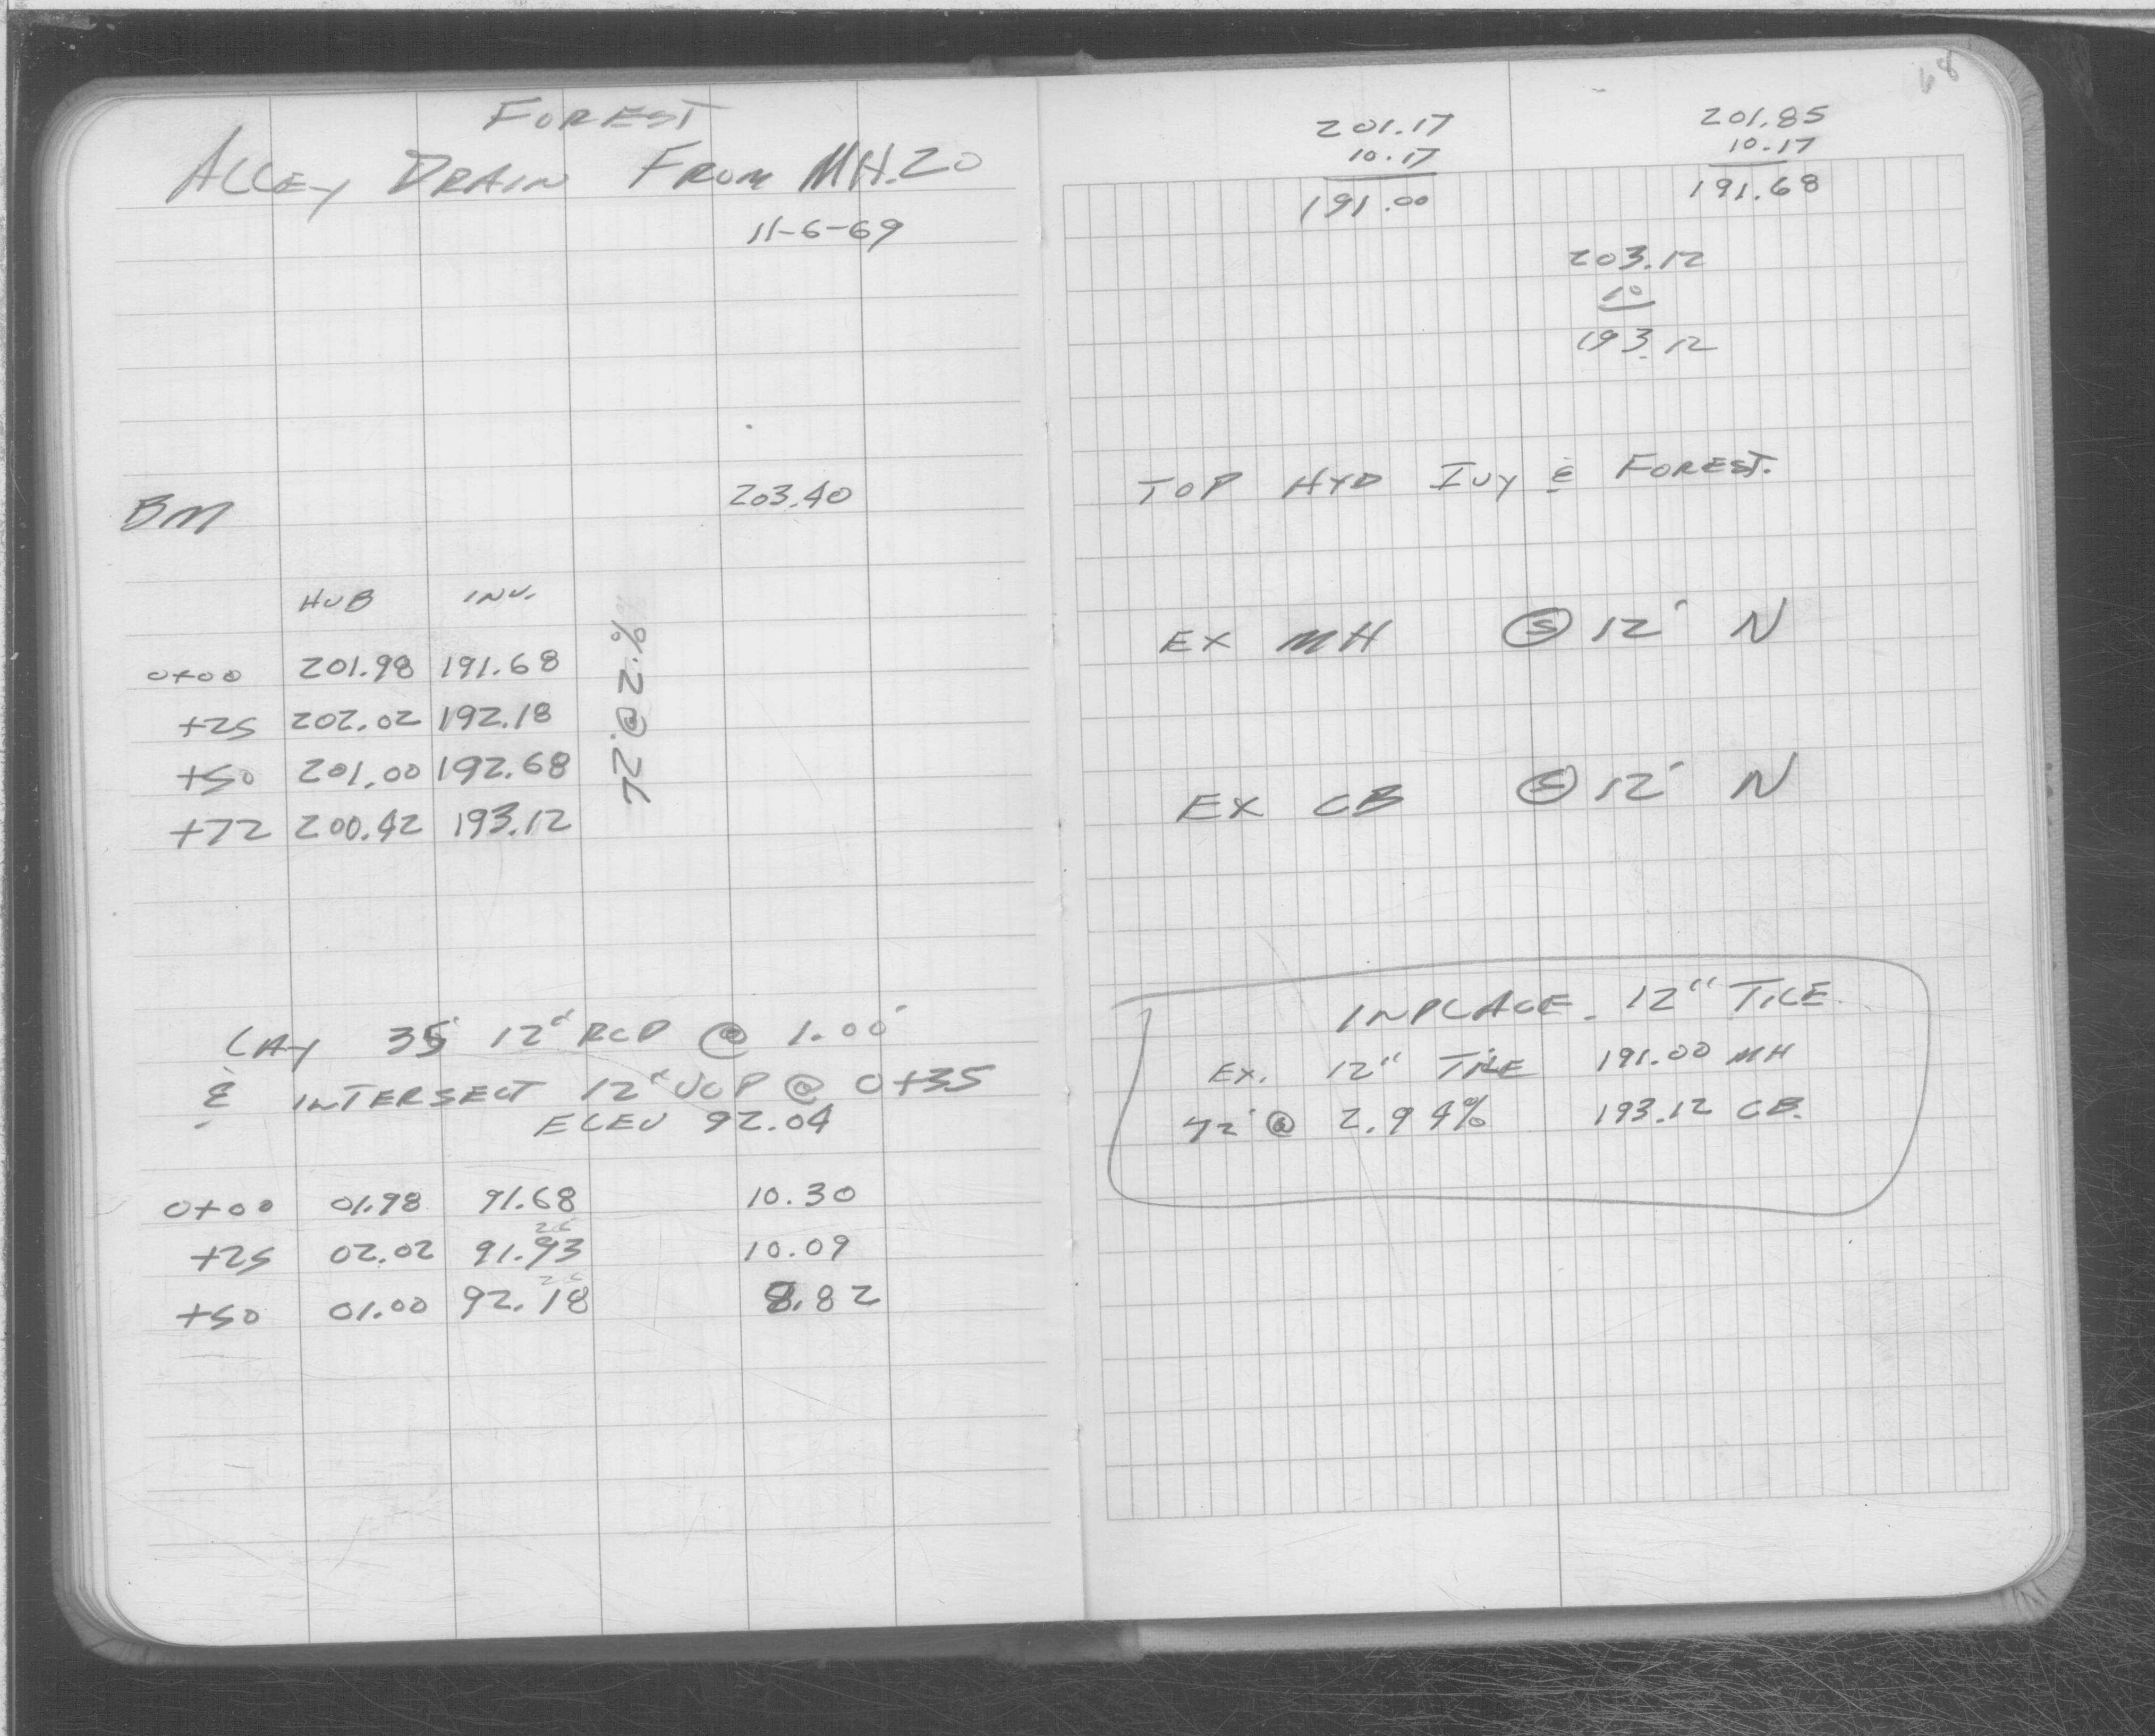 FOREST
ALLEY DRAIN FROM MH.20
11-6-69
BM 203.40
HUB INV.
0+00 201.98 191.68
+25 202.02 192.18
+50 201.00 192.68
+72 200.42 193.12
72'@2.%
LAY 35' 12" RCP @ 1.00'
& INTERSECT 12" VCP @ 0+35
ELEV 92.04
0+00 01.98 91.68 10.30
26
+25 02.02 91.93 10.09
26
+50 01.00 92.18 8.82
68
201.17 201.85
10.17 10.17
191.00 191.68
203.12
10
193.12
TOP HYD IVY & FOREST.
EX MH Ⓢ 12' N
EX CB Ⓢ 12' N
INPLACE. 12" TILE.
EX. 12" TILE 191.00 MH
72' @ 2.94% 193.12 CB.